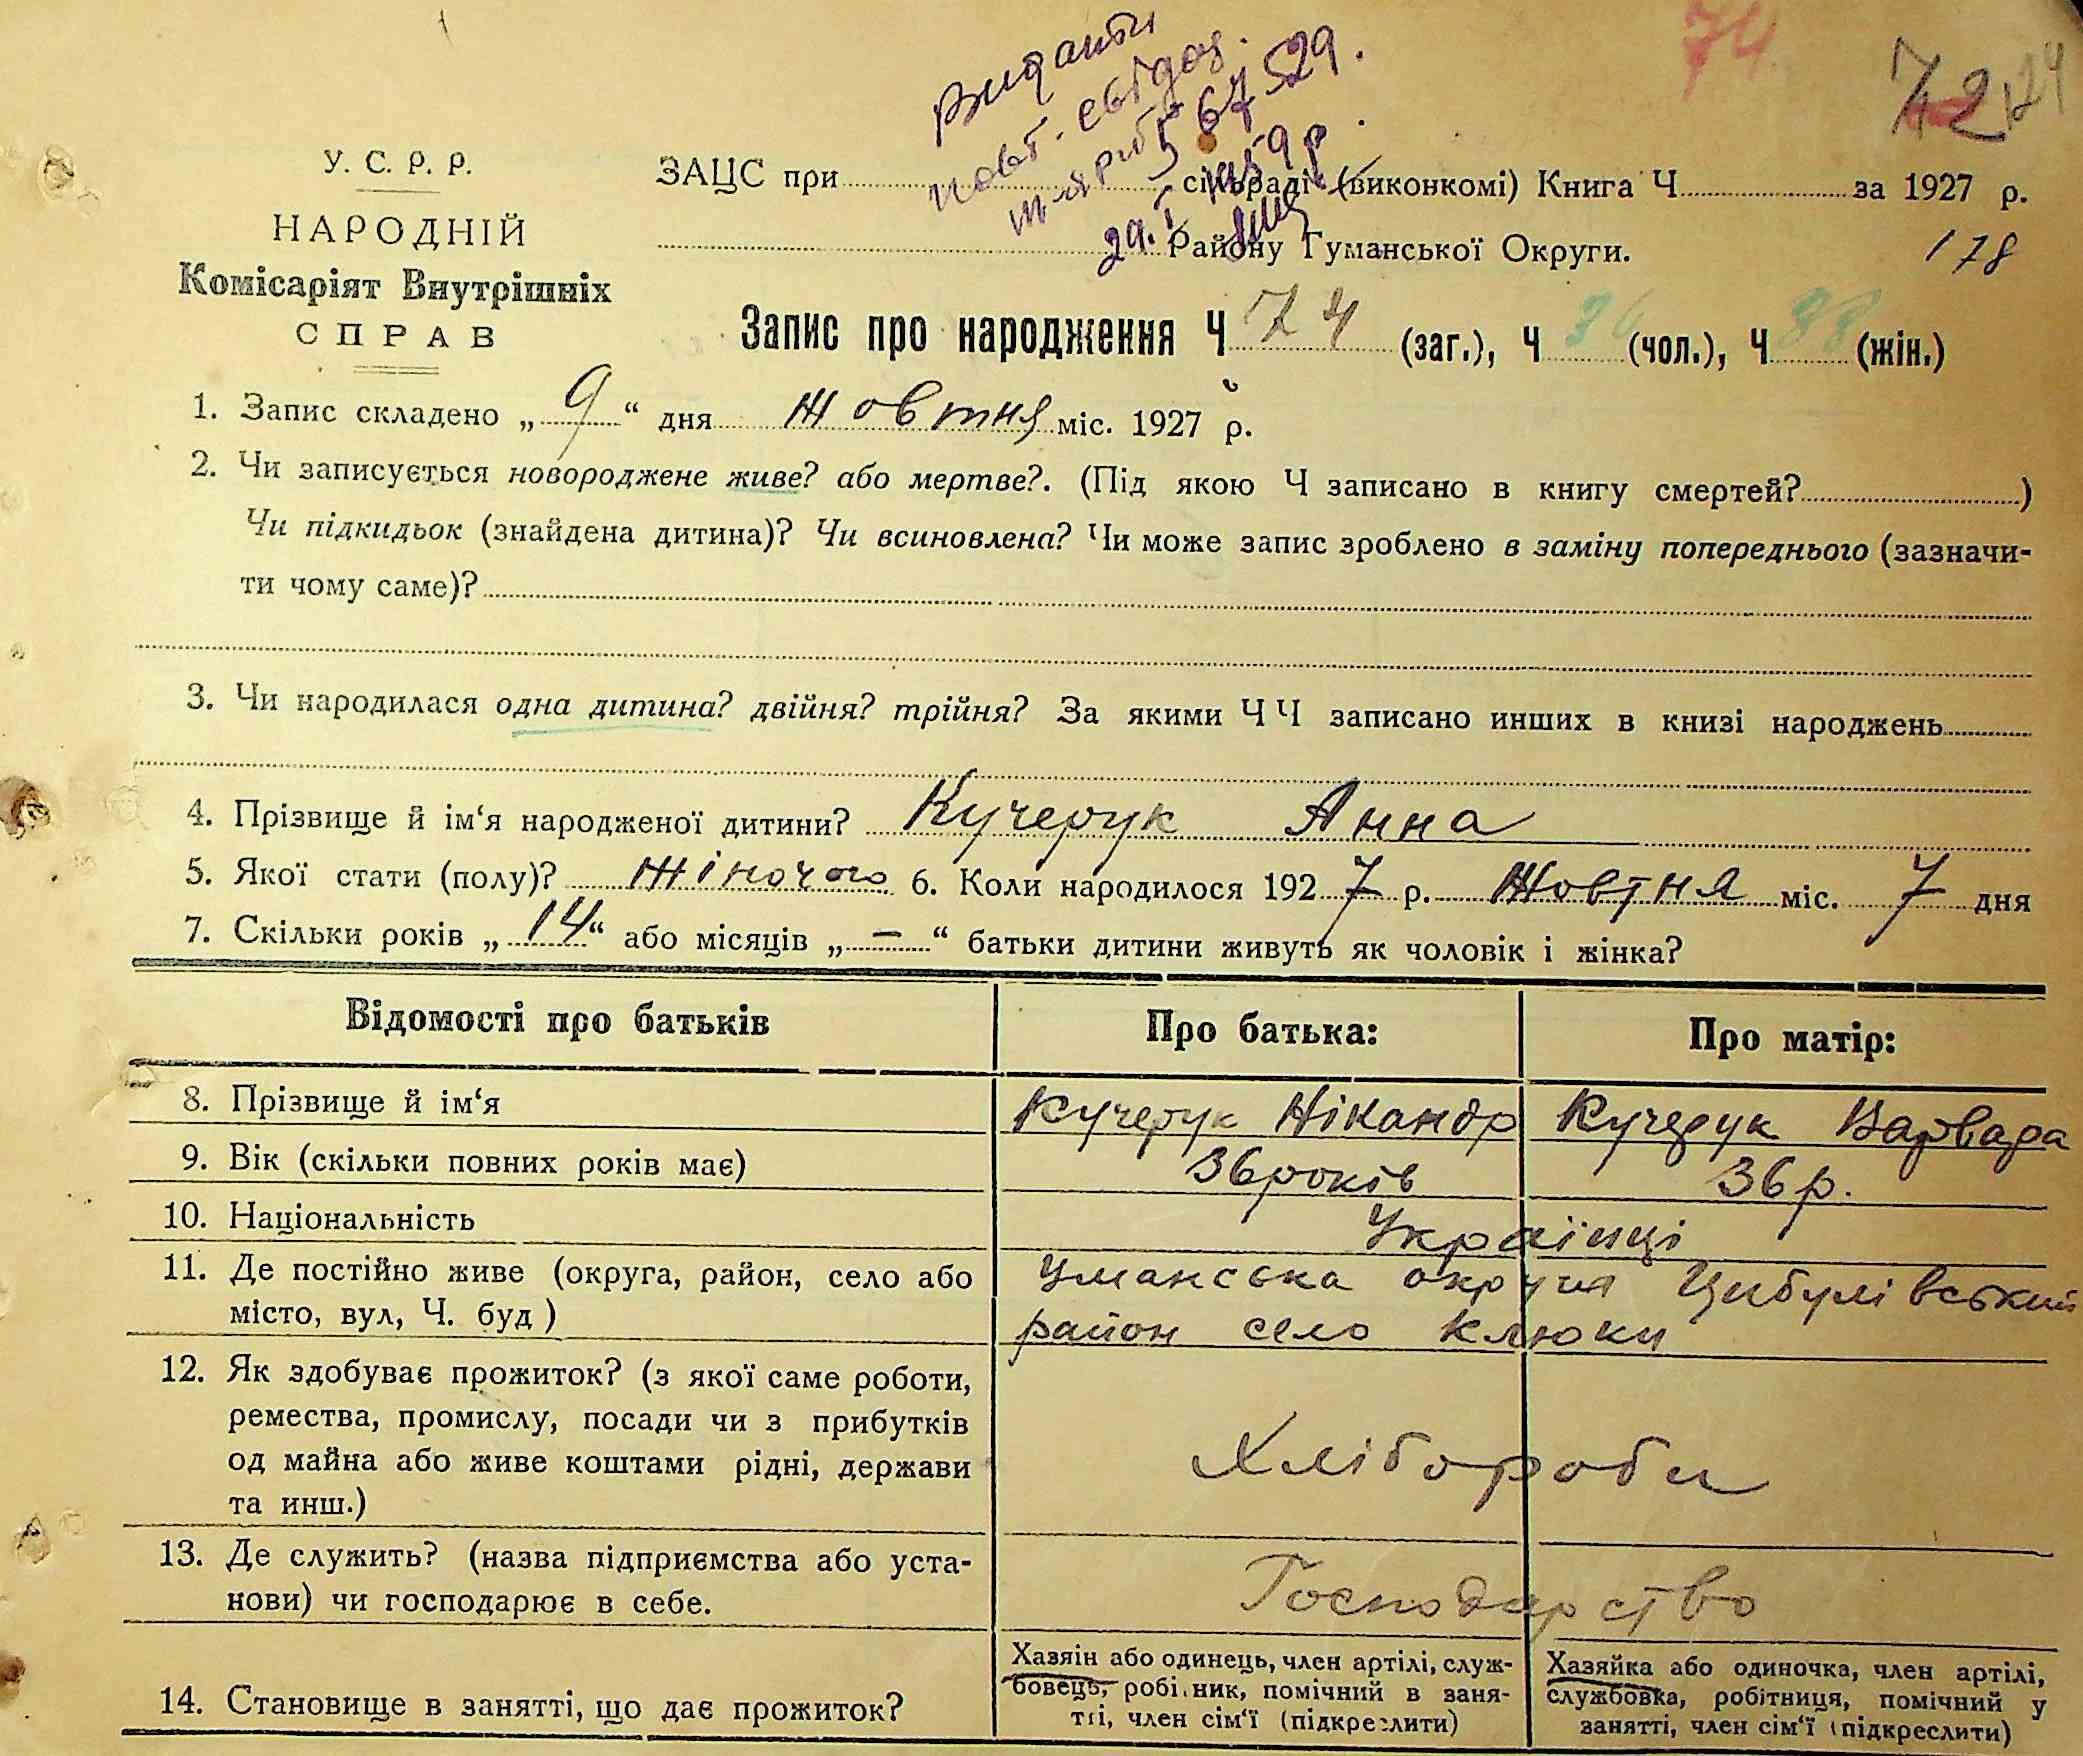 Видати
повт. свідоц.
567529.
74
72
124
У. С. Р. Р.
НАРОДНІЙ
Комісаріят Внутрішніх
СПРАВ
ЗАЦС при сільраді (виконкомі) Книга Ч за 1927 р.
29.
Району Гуманської Округи.
178
Запис про народження Ч 74 (заг.), Ч 36 (чол.), Ч 38 (жін.)
1. Запис складено „ 9 “ дня жовтня міс. 1927 р.
2. Чи записується новороджене живе? або мертве?. (Під якою Ч записано в книгу смертей? )
Чи підкидьок (знайдена дитина)? Чи всиновлена? Чи може запис зроблено в заміну попереднього (зазначи-
ти чому саме)?
3. Чи народилася одна дитина? двійня? трійня? За якими ЧЧ записано инших в книзі народжень
4. Прізвище й ім‘я народженої дитини? Кучерук Анна
5. Якої стати (полу)? Жіночого 6. Коли народилося 1927 р. Жовтня міс. 7 дня
7. Скільки років „ 14 “ або місяців „ — “ батьки дитини живуть як чоловік і жінка?
Відомості про батьків Про батька: Про матір:
8. Прізвище й ім‘я Кучерук Нікандр Кучерук Варвара
9. Вік (скільки повних років має) 36 років 36 р.
10. Національність Українці
11. Де постійно живе (округа, район, село або Уманська округа Цибулівський
місто, вул, Ч. буд ) район село Клюки
12. Як здобуває прожиток? (з якої саме роботи,
ремества, промислу, посади чи з прибутків
од майна або живе коштами рідні, держави Хлібороби
та инш.)
13. Де служить? (назва підприємства або уста-
нови) чи господарює в себе. Господарство
14. Становище в занятті, що дає прожиток?
Хазяін або одинець, член артілі, служ-
бовець, робі.ник, помічний в заня-
тті, член сім‘ї (підкреслити)
Хазяйка або одиночка, член артілі,
службовка, робітниця, помічний у
занятті, член сім‘ї (підкреслити)